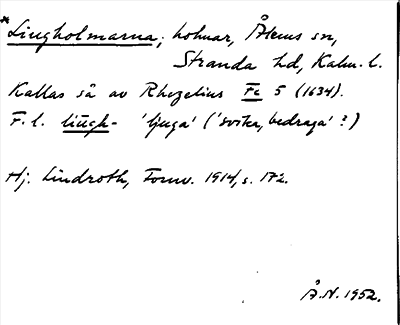 *Liugholmarna; holmar, Ålems sn,
Stranda hd, Kalm. l.
Kallas så av Rhezelius Fc 5 (1634).
F. l. liugh- 'ljuga' ('svika, bedraga'?)
Hj. Lindroth, Fornv. 1914, s. 172.
Å.N. 1952.